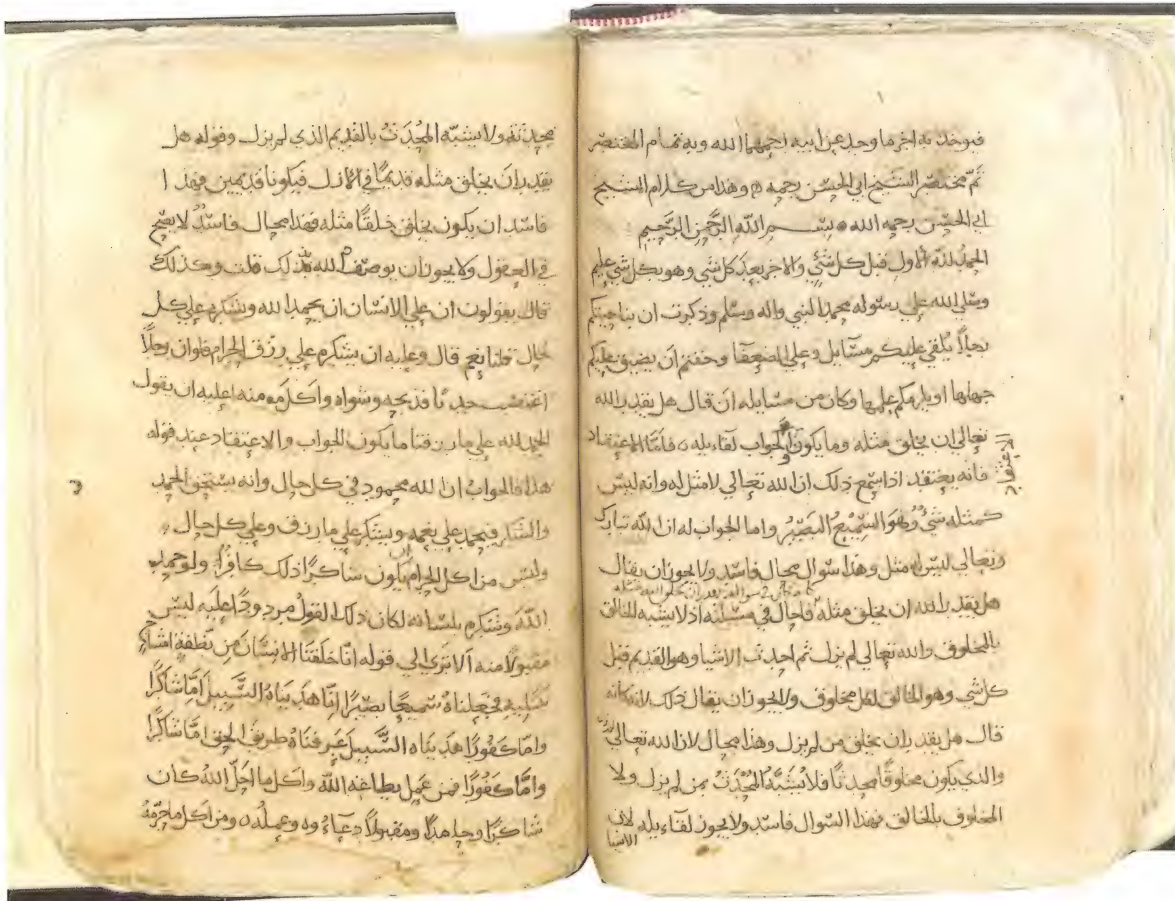 فيوخذ به اخر ما وجد عن ابيه رحمهما الله وبه تمام المختصر
تم مختصر الشيخ ابي الحسن رحمه الله وهذا من كلام الشيخ
ابي الحسن رحمه الله بسم الله الرحمن الرحيم
الحمد لله الاول قبل كل شيء والاخر بعد كل شي وهو بكل شي عليم
وصلى الله على رسوله محمد النبي واله وسلم وذكرت ان بناحيتكم
رجلا يلقي عليكم مسايل وعلى الضعفا وخفتم ان يضيق عليكم
جهلها او يلزمكم علمها وكان من مسايله ان قال هل يقدر الله
تعالى ان يخلق مثله وما يكون الجواب لقايله فاما الاعتقاد
الاعتقاد
فانه يعتقد اذا سمع ذلك ان الله تعالى لا مثل له وانه ليس
كمثله شيء وهو السميع البصير واما الجواب له ان الله تبارك
وتعالى ليس له مثل وهذا سوال محال فاسد ولا يجوز ان يقال
هل يقدر الله ان يخلق مثله فاحال في مسئلته اذ لا يشبه الخالق
بالمخلوق والله تعالى لم يزل ثم احدث الاشيا وهو القديم قبل
كل شي وهو الخالق لكل مخلوق ولا يجوز ان يقال ذلك لانه كانه
قال هل يقدر ان يخلق من لم يزل وهذا محال لان الله تعالى
والذي يكون مخلوقا محدثا فلا يشبه المحدث بمن لم يزل ولا
المخلوق بالخالق فهذا السوال فاسد ولا يجوز لقايله لان
الاشيا
محدثة ولا يشبه المحدث بالقديم الذي لم يزل وقوله هل
يقدر ان يخلق مثله قديما في الازل فيكونا قديمين فهذا
فاسد ان يكون يخلق خلقا مثله فهذا محال فاسد لا يصح
في العقول ولا يجوز ان يوصف الله بذلك قلت وكذلك
قال يقولون ان على الانسان ان يحمد الله ويشكره على كل
حال قلنا نعم قال وعليه ان يشكره على رزق الحرام فلو ان رجلا
اغتصب فذبحه وشواه واكل منه اعليه ان يقول
الحمد لله على ما رزقنا ما يكون الجواب والاعتقاد عند قوله
هذا فالجواب ان الله محمود في كل حال وانه يستحق الحمد
والشكر فيحمد على نعمه ويشكر على ما رزق وعلى كل حال
وليس من اكل الحرام ان يكون شاكرا ذلك كافرا ولو حمد
الله وشكره بلسانه لكان ذلك القول مردودا عليه ليس
مقبولا منه الا ترى الى قوله انا خلقنا الانسان من نطفة امشاج
نبتليه فجعلناه سميعا بصيرا انا هديناه السبيل اما شاكرا
واما كفورا هديناه السبيل عرفناه طريق الحق اما شاكرا
واما كفورا فمن عمل بطاعة الله واكل ما احل الله كان
شاكرا وحامدا ومقبولا دعاءوه وعمله ومن اكل ما حرمه